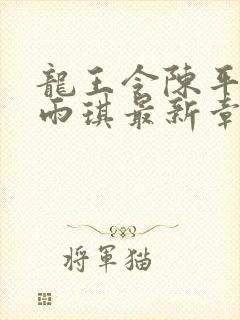 龍王令陳平
雨琪最新章
將軍猫